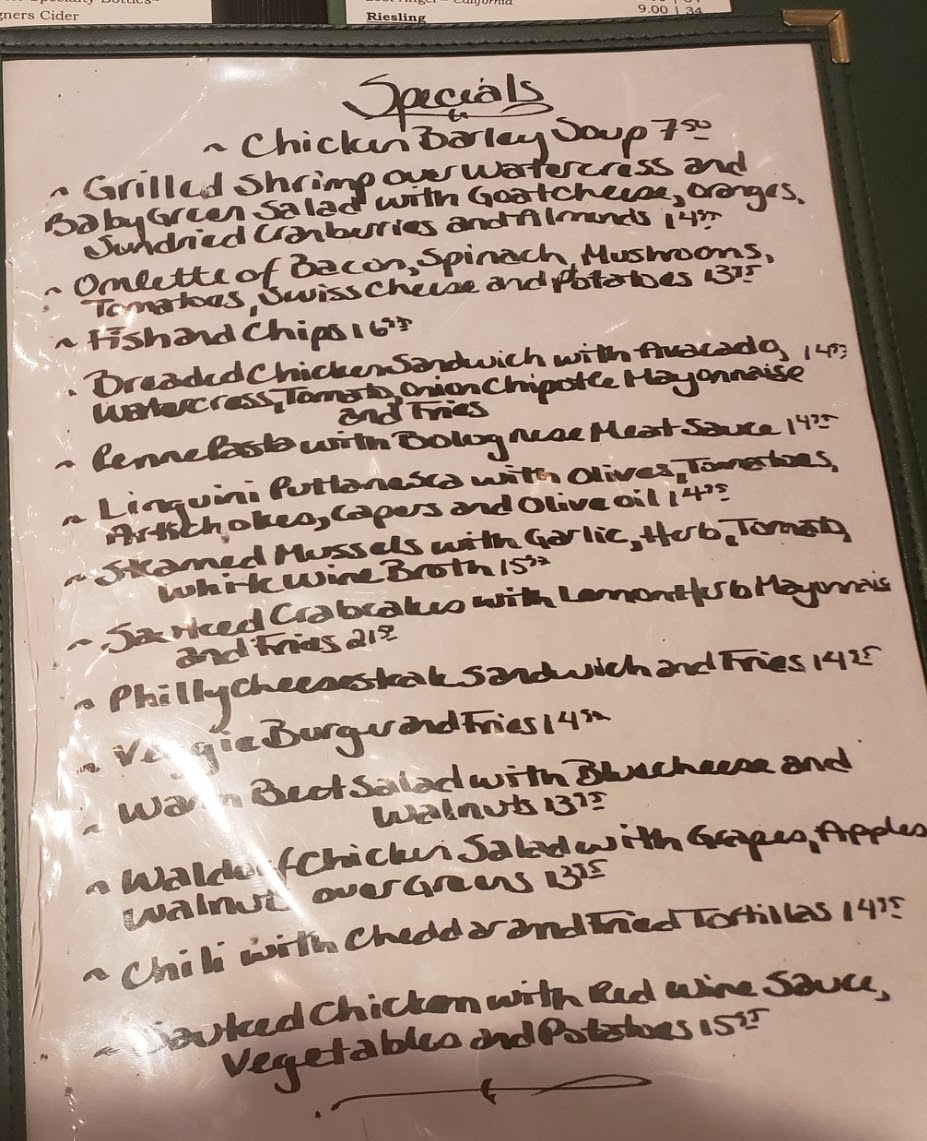 ners Cider
California
Riesling
9.00 | 34
Specials
~ Chicken Barley Soup 7.50
~ Grilled Shrimp over Watercress and
Baby Green Salad with Goat cheese, oranges,
Sundried Cranberries and Almunds 14
~ Omlette of Bacon, Spinach, Mushrooms,
Tomatoes, Swiss Cheese and Potatoes 13.75
~ Fish and Chips 16
~ Breaded Chicken Sandwich with Avacado, 14
Watercress, Tomato, onion Chipotle Mayonnaise
and Fries
~ Penne Pasta with Bolognese Meat Sauce 14
~ Linguini Puttanesca with Olives, Tomatoes,
Artichokes, Capers and Olive oil 14
~ Steamed Mussels with Garlic, Herb, Tomato,
White Wine Broth 15
~ Sauteed Crabcakes with Lemon Herb Mayonnais
and Fries 21
~ Philly cheesesteak Sandwich and Fries 14
~ Veggie Burger and Fries 14
~ Warm Beet Salad with Bluecheese and
Walnuts 13.75
~ Waldorf Chicken Salad with Grapes, Apples
Walnut over Greens 13
~ Chili with Cheddar and Fried Tortillas 14
~ Sauteed Chicken with Red Wine Sauce,
Vegetables and Potatoes 15